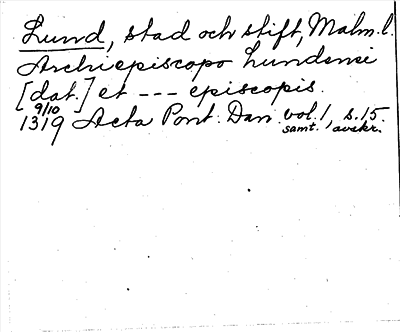 Lund, stad och stift, Malm. l.
Archiepiscopo Lundensi
[dat.] et --- episcopis.
9/10
1319 Acta Pont. Dan. vol. 1, s. 15.
samt. avskr.